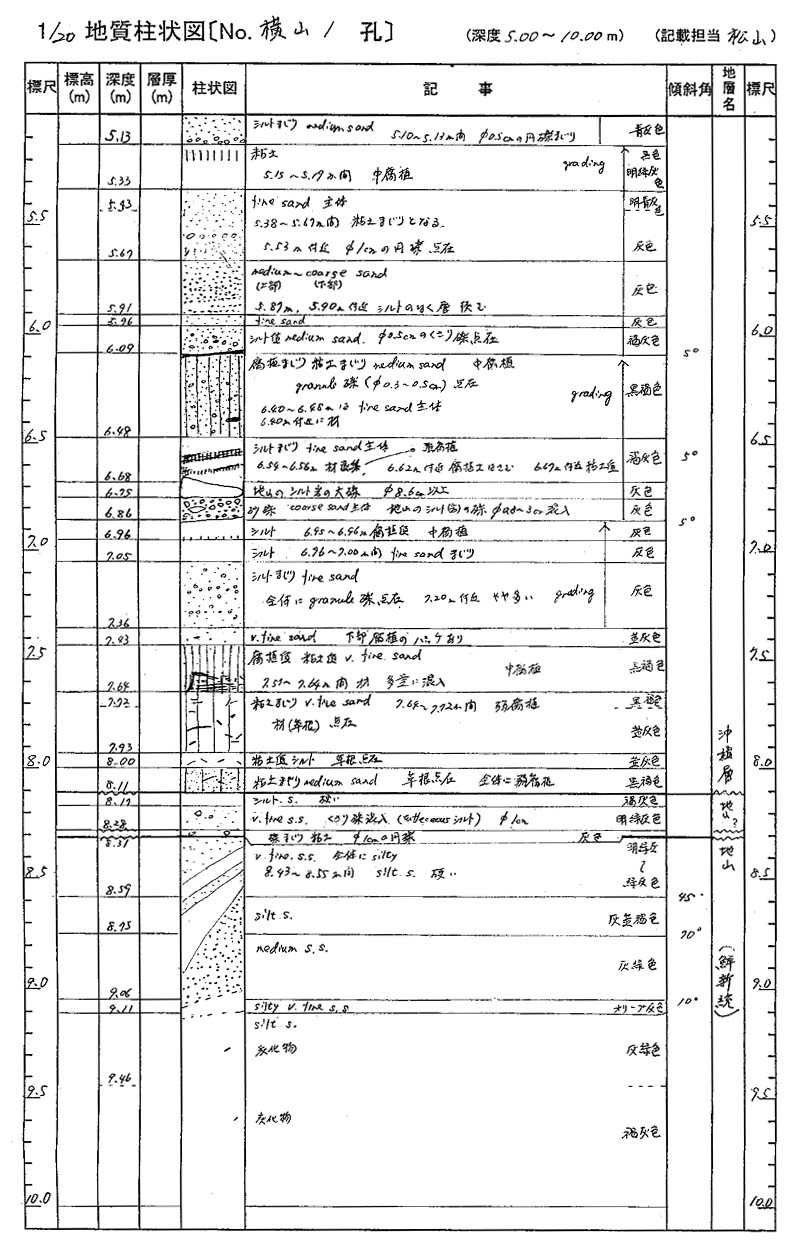 1/20 地質柱状図〔No. 横山 1 孔〕 (深度 5.00～10.00 m) (記載担当 松山)
標尺 標高(m) 深度(m) 層厚(m) 柱状図 記事 傾斜角 地層名 標尺
シルトまじり medium sand 5.10～5.13m間 φ0.5cmの円礫まじり 青灰色
5.13
粘土 grading
5.15～5.19m間 中腐植 明緑灰色
5.33
fine sand 主体 明青灰色
5.43
5.38～5.67m間 粘土まじりとなる
5.5 5.5
5.53m付近 φ1cmの円礫点在 灰色
5.67
medium～coarse sand
(上部) (下部) 灰色
5.87m, 5.90m付近 シルトのはく層挟む
5.91
fine sand 灰色
5.96
6.0 6.0
シルト値 medium sand. φ0.5cmのくさり礫点在 褐灰色
6.09
5°
腐植まじり 粘土まじり medium sand 中腐植
granule 礫 (φ0.3～0.5cm) 点在 grading 黒褐色
6.40～6.48mは fine sand 主体
6.40m付近に材
6.48
6.5 6.5
シルトまじり fine sand 主体
6.54～6.56m 材 6.62m付近 腐植土はさむ 6.67m付近 粘土値 褐灰色 5°
6.68
地山のシルト岩の大礫 φ8.6cm以上 灰色
6.75
砂礫 coarse sand 主体 地山のシルト岩の礫 混入 灰色
6.86
5°
シルト 6.95～6.96m 腐植値 中腐植 灰色
6.96
7.0 7.0
シルト 6.96～7.00m間 fine sand まじり 灰色
7.05
シルトまじり fine sand
全体に granule 礫点在 7.20m付近 やや多い grading 灰色
7.36
v. fine sand 下部腐植のパッチあり 黄灰色
7.43
7.5 7.5
腐植値 粘土値 v. fine sand 中腐植 黒褐色
7.57～7.64m間 材 多量に混入
7.64
粘土まじり v. fine sand 7.64～7.72m間 弱腐植 黒褐色
7.72
材(草根) 点在 黄灰色
7.93
粘土値シルト 草根点在 黄灰色
8.00
8.0 8.0
沖積層
粘土まじり medium sand 草根点在 全体に弱腐植 黒褐色
8.11
シルト.s. 硬い 褐灰色
8.17
地山?
v. fine s.s. くさり礫混入 (tuffaceousシルト) φ1cm 明緑灰色
8.28
礫まじり 粘土 φ1cmの円礫 灰色
8.31
v. fine. s.s. 全体に silty
8.43～8.55m間 silt. s. 硬い 緑灰色
地山
8.5 8.5
8.59
45°
silt. s. 灰黄褐色
8.75
70°
medium s.s. 灰緑色
(鮮新統)
9.0 9.0
9.06
10°
silty v. fine s.s オリーブ灰色
9.11
silt s.
炭化物 灰緑色
9.46
9.5 9.5
炭化物 褐灰色
10.0 10.0